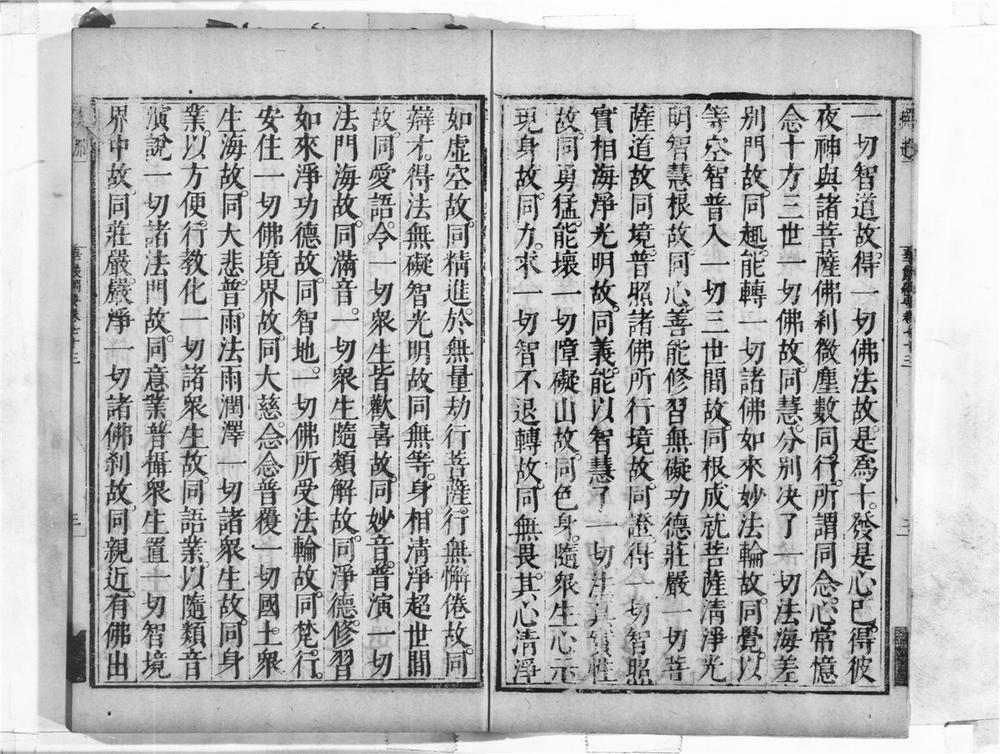 一切智道故得一切佛法故是爲十發是心已得彼
夜神與諸菩薩佛刹微塵數同行所謂同念心常憶
念十方三世一切佛故同慧分別决了一切法海差
別門故同趣能轉一切諸佛如來妙法輪故同覺以
等空智普入一切三世間故同根成就菩薩清淨光
明智慧根故同心善能修習無礙功德莊嚴一切菩
薩道故同境普照諸佛所行境故同證得一切智照
實相海淨光明故同義能以智慧了一切法真實性
故同勇猛能壞一切障礙山故同色身隨衆生心示
現身故同力求一切智不退轉故同無畏其心清淨
如虛空故同精進於無量劫行菩薩行無懈倦故同
辯才得法無礙智光明故同無等身相清淨超世間
故同愛語令一切衆生皆歡喜故同妙音普演一切
法門海故同滿音一切衆生隨類解故同淨德修習
如來淨功德故同智地一切佛所受法輪故同梵行
安住一切佛境界故同大慈念念普覆一切國土衆
生海故同大悲普雨法雨潤澤一切諸衆生故同身
業以方便行教化一切諸衆生故同語業以隨類音
演說一切諸法門故同意業普攝衆生置一切智境
界中故同莊嚴嚴淨一切諸佛刹故同親近有佛出